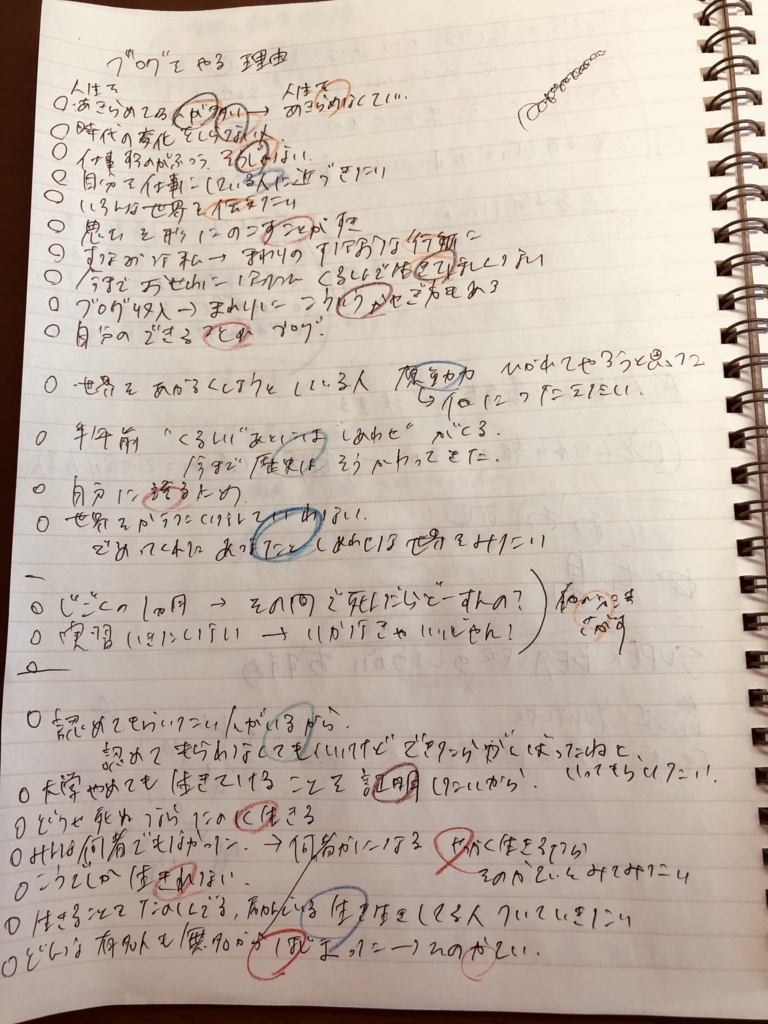 ブログをやる理由
人生を 人生を
○あきらめてる人が多い → あきらめなくていい
○時代の変化をしらない人
○仕事するのがふつう そうじゃない
○自分で仕事にしている人に近づきたい
○いろんな世界を伝えたい
○思いを形にのこすことができ
○すなおな私 → まわりの
○今まで くるしんで生きてほしくない
○ブログ収入 → まわりにこういうかせぎ方もある
○自分のできることがブログ
○世界をあかるくしようとしている人 原動力 ひかれてやろうと思った
↳他につたえたい
○半年前 "くるしい"あとには"しあわせ"がくる
今まで歴史はそうかわってきた
○自分に誇るため
○世界を
であってくれた しあわせな世界をみたい
○じごくの1ヵ月 → その間で死んだらどーすんの?
○実習いきたくない → いかなきゃいいじゃん!
さがす
○認めてもらいたい人がいるから
認めてもらわなくてもいいけどできたらがんばったねと
いってもらいたい
○大学やめても生きていけることを証明したいから
○どうせ死ぬならたのしく生きる
○みんな何者でもなかった → 何者かになる せっかく生きるなら
そのかていをみてみたい
○こうでしか生きれない
○生きることをたのしんでる、 人 ついていきたい
○どんな有名人も無名からはじまった → そのかてい